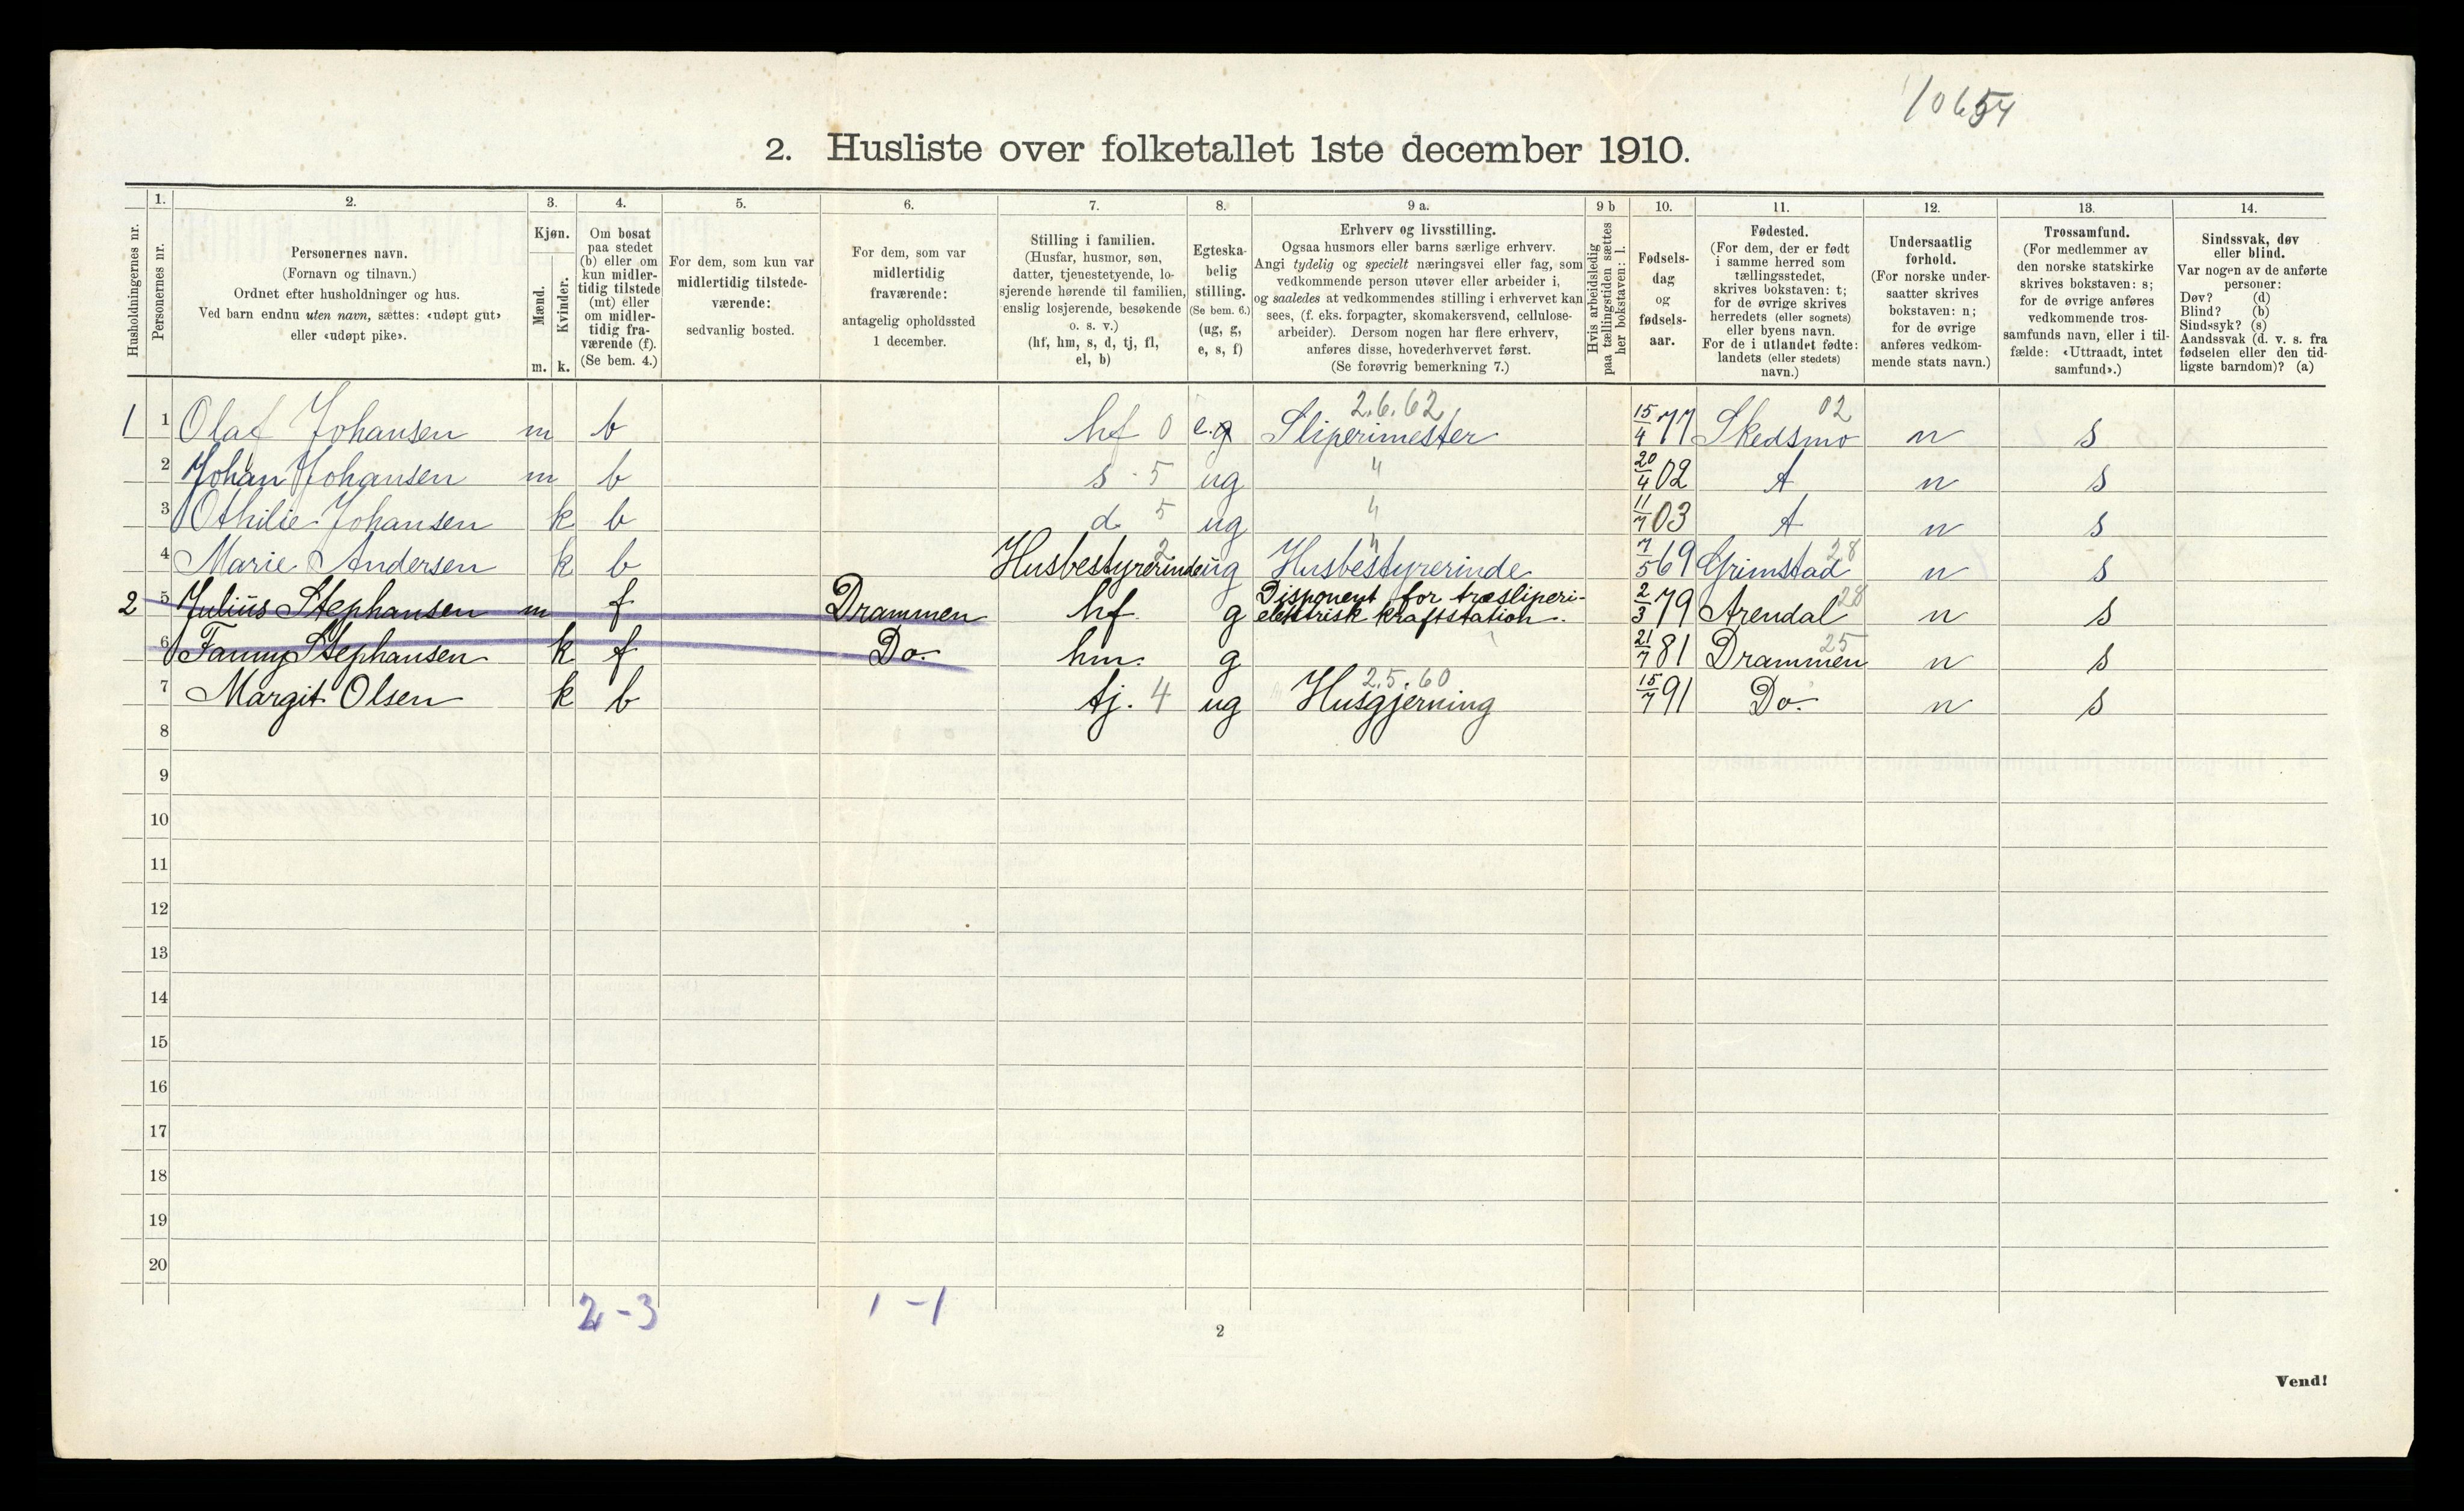 10654
2. Husliste over folketallet 1ste december 1910.
Husholdningernes nr.
1.
Personernes nr.
2.
Personernes navn.
(Fornavn og tilnavn.)
Ordnet efter husholdninger og hus.
Ved barn endnu uten navn, sættes: «udøpt gut»
eller «udøpt pike».
3.
Kjøn.
Mænd.
Kvinder.
m. k.
4.
Om bosat
paa stedet
(b) eller om
kun midler-
tidig tilstede
(mt) eller
om midler-
tidig fra-
værende (f).
(Se bem. 4.)
5.
For dem, som kun var
midlertidig tilstede-
værende:
sedvanlig bosted.
6.
For dem, som var
midlertidig
fraværende:
antagelig opholdssted
1 december.
7.
Stilling i familien.
(Husfar, husmor, søn,
datter, tjenestetyende, lo-
sjerende hørende til familien,
enslig losjerende, besøkende
o. s. v.)
(hf, hm, s, d, tj, fl,
el, b)
8.
Egteska-
belig
stilling.
(Se bem. 6.)
(ug, g,
e, s, f)
9 a.
Erhverv og livsstilling.
Ogsaa husmors eller barns særlige erhverv.
Angi tydelig og specielt næringsvei eller fag, som
vedkommende person utøver eller arbeider i,
og saaledes at vedkommendes stilling i erhvervet kan
sees, (f. eks. forpagter, skomakersvend, cellulose-
arbeider). Dersom nogen har flere erhverv,
anføres disse, hovederhvervet først.
(Se forøvrig bemerkning 7.)
9 b
Hvis arbeidsledig
paa tællingstiden sættes
her bokstaven: l.
10.
Fødsels-
dag
og
fødsels-
aar.
11.
Fødested.
(For dem, der er født
i samme herred som
tællingsstedet,
skrives bokstaven: t;
for de øvrige skrives
herredets (eller sognets)
eller byens navn.
For de i utlandet fødte:
landets (eller stedets)
navn.)
12.
Undersaatlig
forhold.
(For norske under-
saatter skrives
bokstaven: n;
for de øvrige
anføres vedkom-
mende stats navn.)
13.
Trossamfund.
(For medlemmer av
den norske statskirke
skrives bokstaven: s;
for de øvrige anføres
vedkommende tros-
samfunds navn, eller i til-
fælde: «Uttraadt, intet
samfund».)
14.
Sindssvak, døv
eller blind.
Var nogen av de anførte
personer:
Døv? (d)
Blind? (b)
Sindssyk? (s)
Aandssvak (d. v. s. fra
fødselen eller den tid-
ligste barndom)? (a)
2.6.62 02
1 1 Olaf Johansen m b hf 0 e. g Sliperimester 15/4 77 Skedsmo n s
2 Johan Johansen m b s 5 ug " 20/4 02 t n s
3 Othilie Johansen k b d 5 ug " 11/7 03 t n s
4 Marie Andersen k b Husbestyrerinde 2 ug " Husbestyrerinde 7/5 69 Grimstad 28 n s
2 5 Julius Stephansen m f Drammen hf g Disponent for træsliperi- elektrisk kraftstation. 2/3 79 Arendal 28 n s
6 Fanny Stephansen k f Do. hm. g 21/7 81 Drammen 25 n s
7 Margit Olsen k b tj. 4 ug 2.5.60 Husgjerning 15/7 91 Do. n s
8
9
10
11
12
13
14
15
16
17
18
19
20
2-3 1-1
2
Vend!